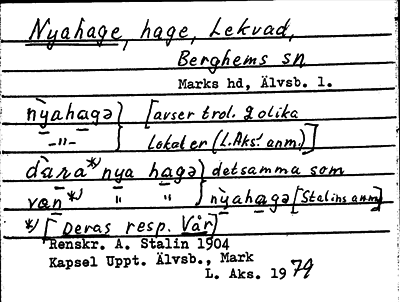 Nyahage, hage, Lekvad,
Berghems sn
Marks hd, Älvsb. l.
nỳahagə } [avser trol. 2 olika
–"– lokaler (L.Aks:s anm.)]
dàra*) nya hagə } detsamma som
van*) " " nỳahagə [Stalins anm]
*) [Deras resp. Vår]
Renskr. A. Stalin 1904
Kapsel Uppt. Älvsb., Mark
L. Aks. 1979